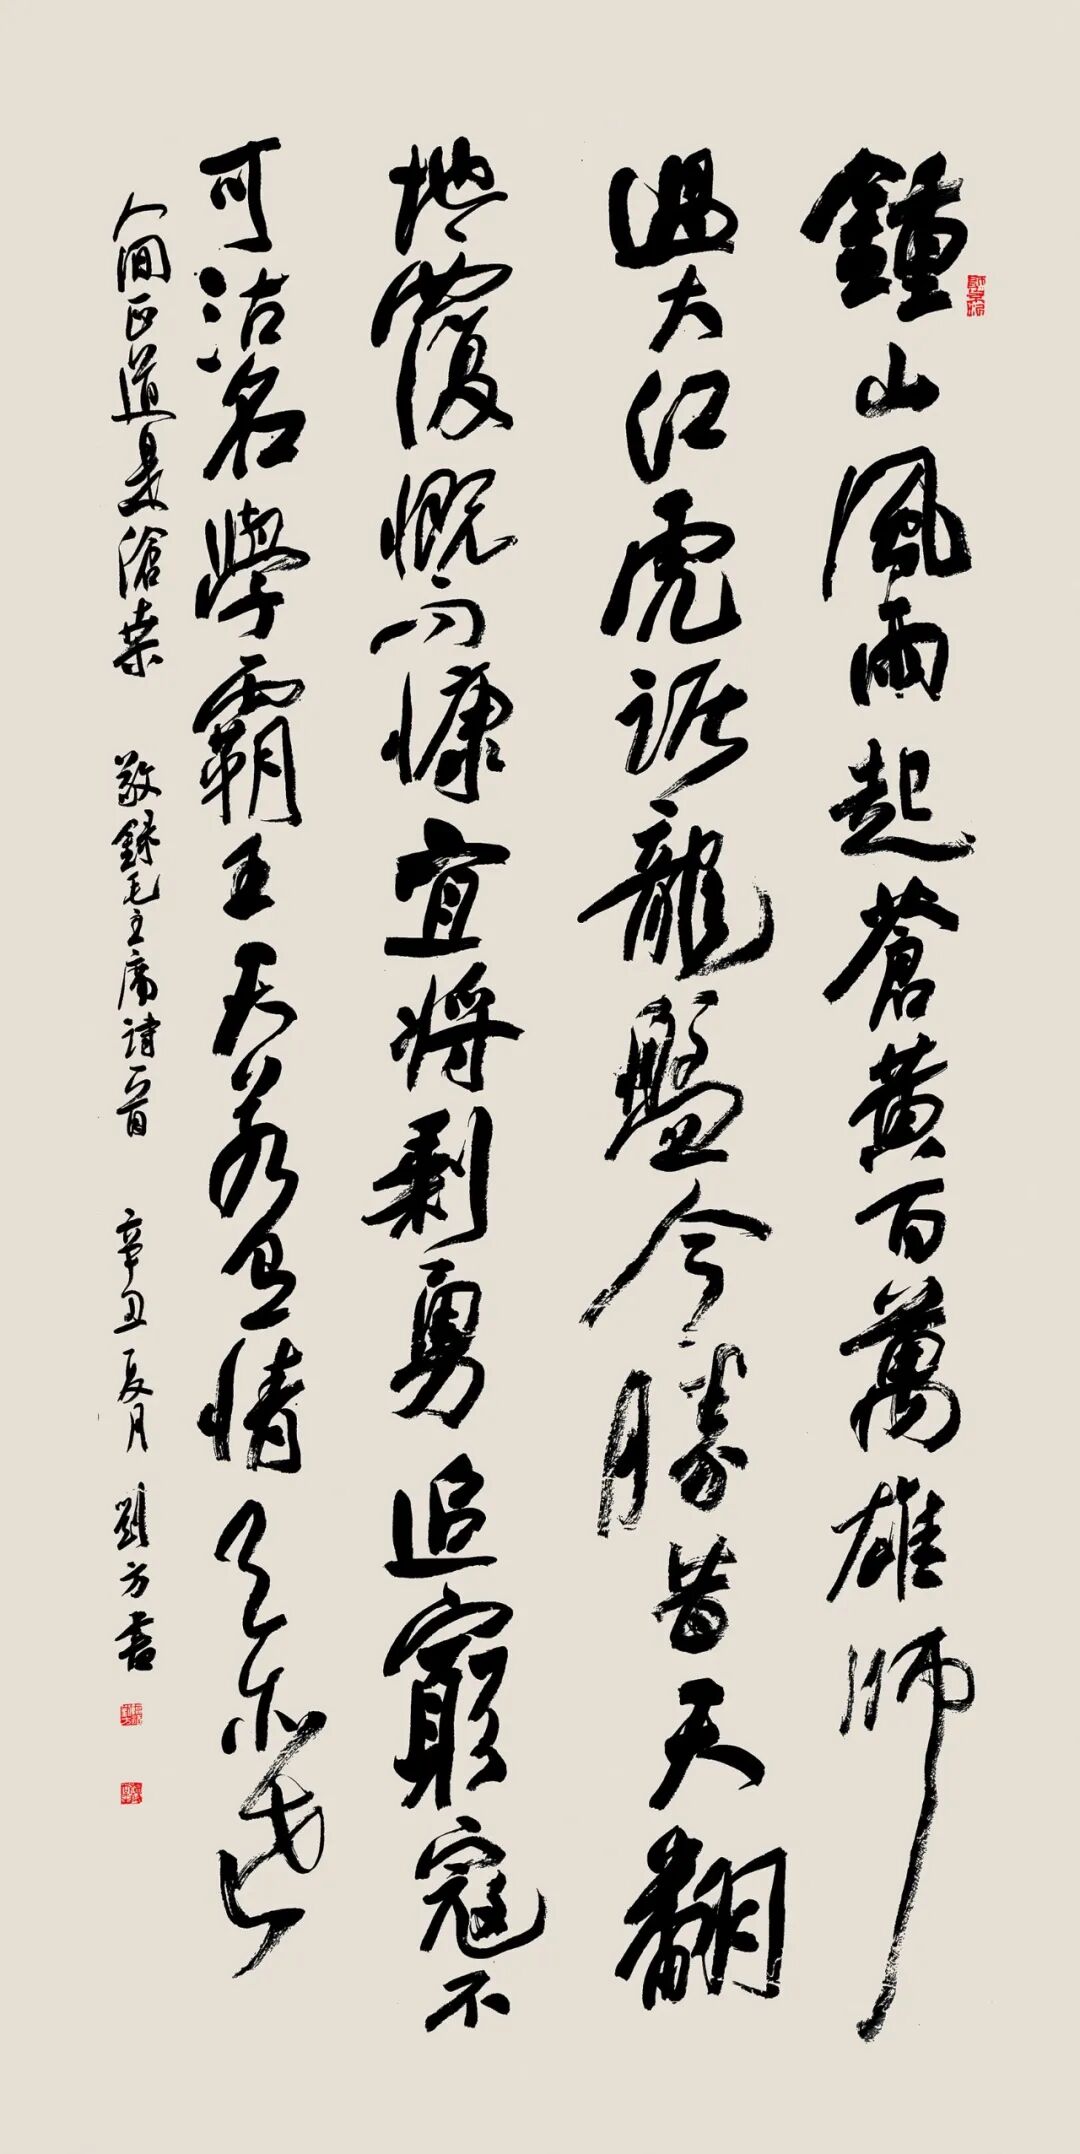 鍾山風雨起蒼黃百萬雄師
過大江虎踞龍盤今勝昔天翻
地覆慨而慷宜將剩勇追窮寇不
可沽名學霸王天若有情天亦老
人間正道是滄桑 敬錄毛主席詩一首 辛丑夏月 劉方書